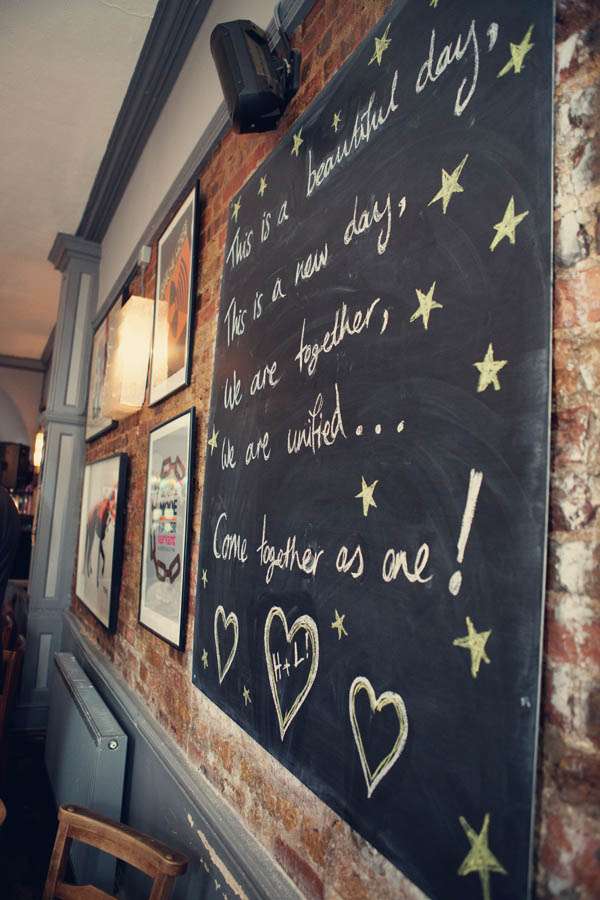 This is a beautiful day,
This is a new day,
We are together,
We are unified...
Come together as one!
H+L!